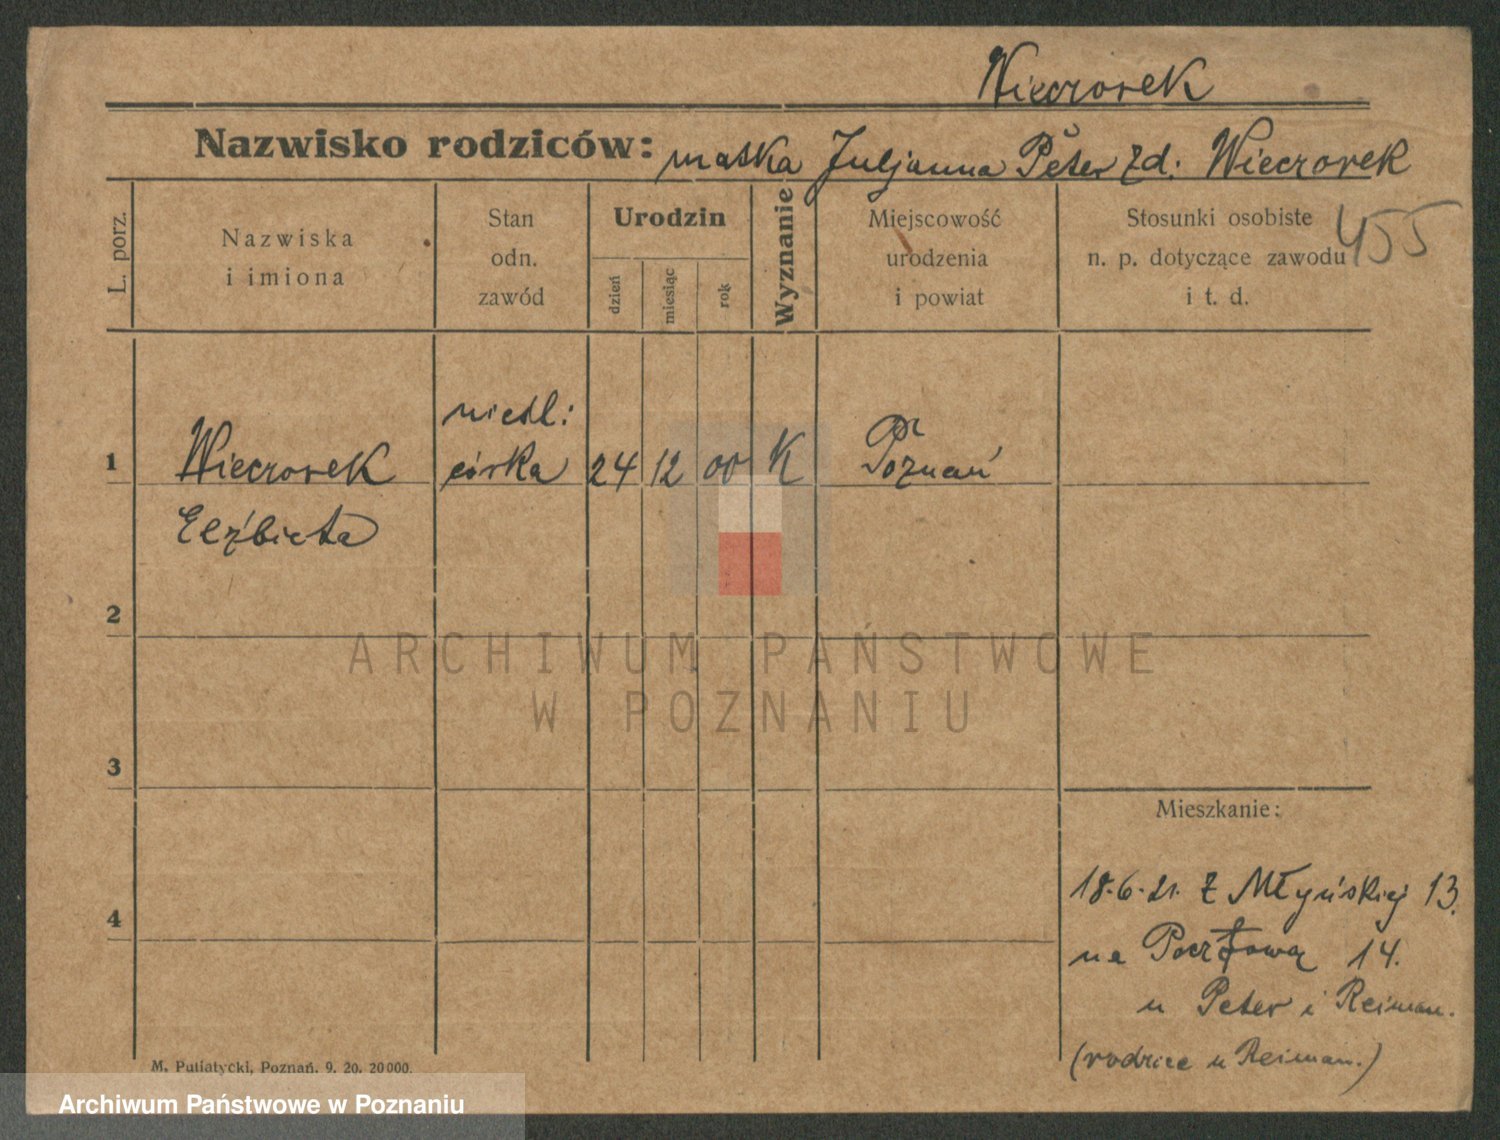 Wieczorek
Nazwisko rodziców: matka Juljanna Peter zd: Wieczorek
L. porz.
Nazwiska
i imiona
Stan
odn.
zawód
Urodzin
dzień
miesiąc
rok
Wyznanie
Miejscowość
urodzenia
i powiat
Stosunki osobiste
n. p. dotyczące zawodu
i t. d.
455
1
Wieczorek
Elżbieta
niedl:
córka
24
12
00
K
Poznań
2
3
4
ARCHIWUM PAŃSTWOWE
W POZNANIU
Mieszkanie:
18.6.21. z Młyńskiej 13.
na Pocztową 14.
u Peter i Reiman.
(rodzice u Reiman.)
M. Putiatycki, Poznań. 9. 20. 20000.
Archiwum Państwowe w Poznaniu